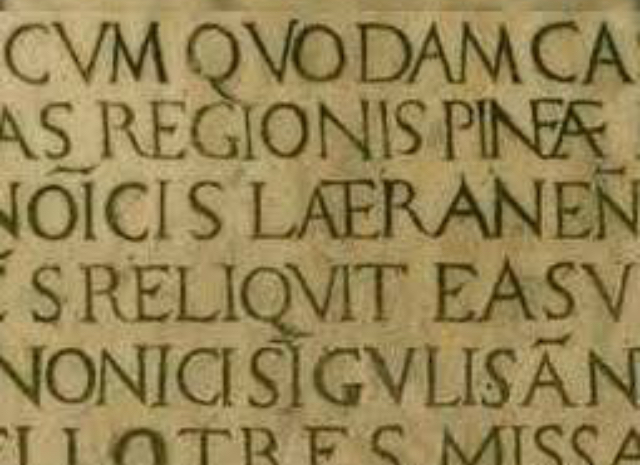 CVM QVODAM CA
AS REGIONIS PINEÆ
NŌĪCIS LATERANEÑ
S RELIQVIT EASV
NONICI SĪGVLIS ĀN
TRES MISSA